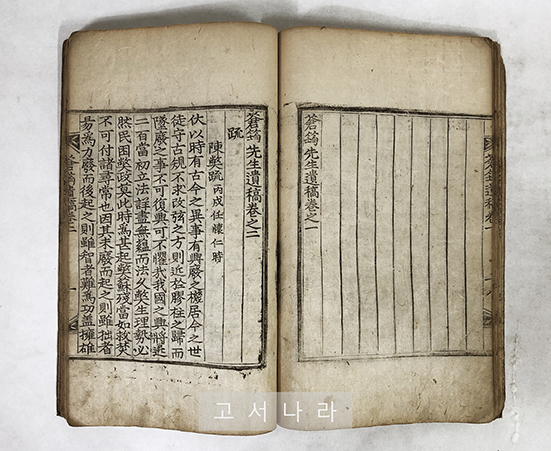 蒼筠遺稿卷一
蒼筠先生遺稿卷之一
蒼筠先生遺稿卷之二
疏
陳弊疏 丙戌任懷仁時
伏以時有古今之異事有興廢之機居今之世
徒守古規不求改弦之方則近於膠柱之歸而
墜廢之事不可復興可不懼哉我國之興將近
二百當初立法詳盡無虧而法久弊生理勢必
然民困弊政莫此時爲甚起弊蘇殘當如救焚
不可付諸尋常也因其未廢而起之則雖拙者
易爲力廢而後起之則雖智者難爲功盖擁雄
蒼筠遺稿卷二
고서나라